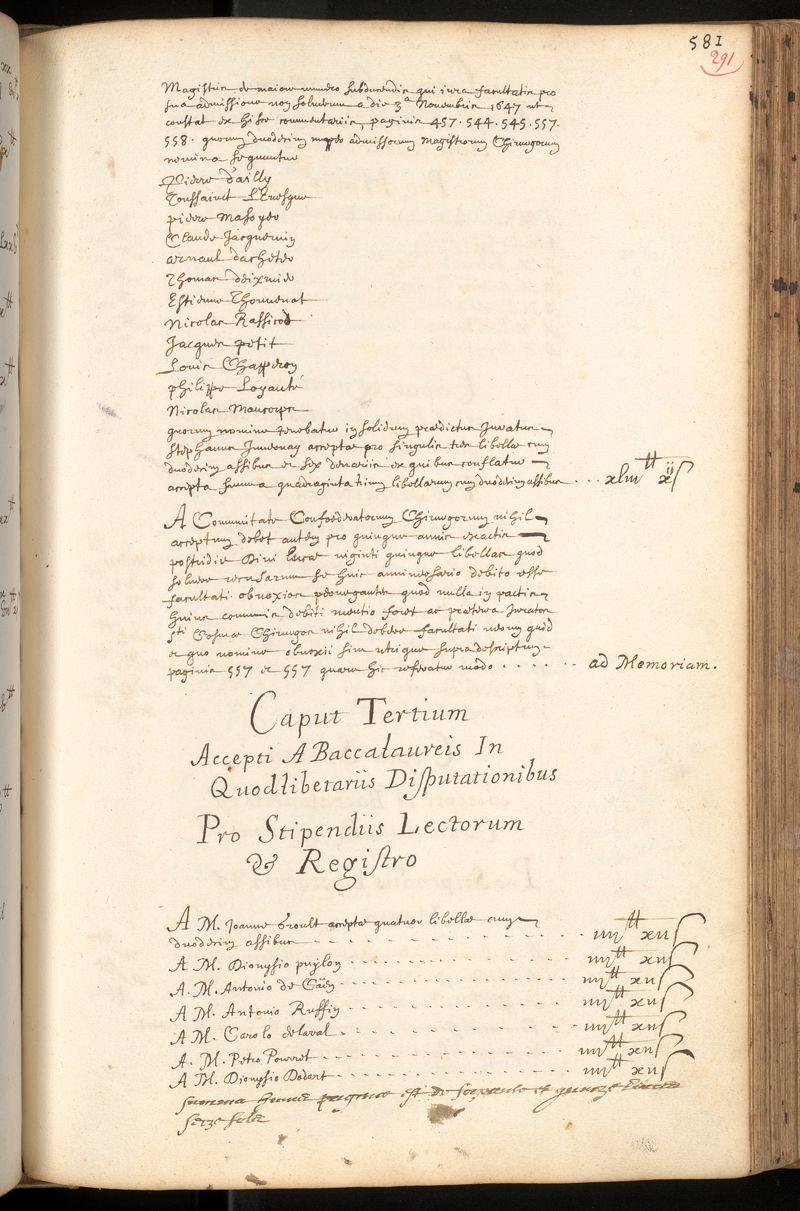 581
291
Magistris de maiore numero subducendis qui iura facultatis pro
sua admissione non soluerunt a die 3ª Novembris 1647 ut
constat ex hisce commentariis, paginis 457. 544. 545. 557.
558. quorum duodecim nuper admissorum Magistrorum Chirurgorum
nomina sequuntur
Pierre d'ailly
Toussainct L'Evesque
pierre
Claude Jacquemin
arnaul dacheter
Thomas
Estienne Thouvenat
Nicolas Rassicod
Jacques petit
Louis Chapperon
philippe Loyauté
Nicolas Maucorps
quorum nomine tenebatur in solidum praedictus Juratus
Stephanus Juvernay acceptae pro singulis tres libellae cum
duodecim assibus et sex denariis ex quibus conflatur
accepta summa quadraginta trium libellarum cum duodecim assibus ... xliii^tt xii ſ
A Communitate Confoederatorum Chirurgorum nihil
acceptum debet autem pro quinque annis exactis
postridie Divi Lucae viginti quinque libellas quod
soluere recusarunt se huic anniversario debito esse
facultati obnoxios pernegantes quod nulla in pactis
huius communis debiti mentio foret ac praeterea Juratos
sti Cosmae Chirurgos nihil debere facultati verum quid
et quo nomine obnoxii sint utrique supra descriptum
paginis 557 et 557 quare hic refertur modo . . . . . . ad Memoriam.
Caput Tertium
Accepti A Baccalaureis In
Quodlibetariis Disputationibus
Pro Stipendiis Lectorum
& Registro
A M. Joanne Groult acceptae quatuor libellae cum
duodecim assibus - - - iiii^tt xii ſ
A M. Dionysio puylon . . . . iiii^tt xii ſ
A. M. Antonio de Caën . . . . iiii^tt xii ſ
A M. Antonio Ruffin . . . . iiii^tt xii ſ
A M. Carolo delaval . . . . iiii^tt xii ſ
A. M. Petro Pourret . . . . iiii^tt xii ſ
A M. Dionysio Dodart . . . . iiii^tt xii ſ
summa huius paginae est de soixante et quinze livres
seize solz